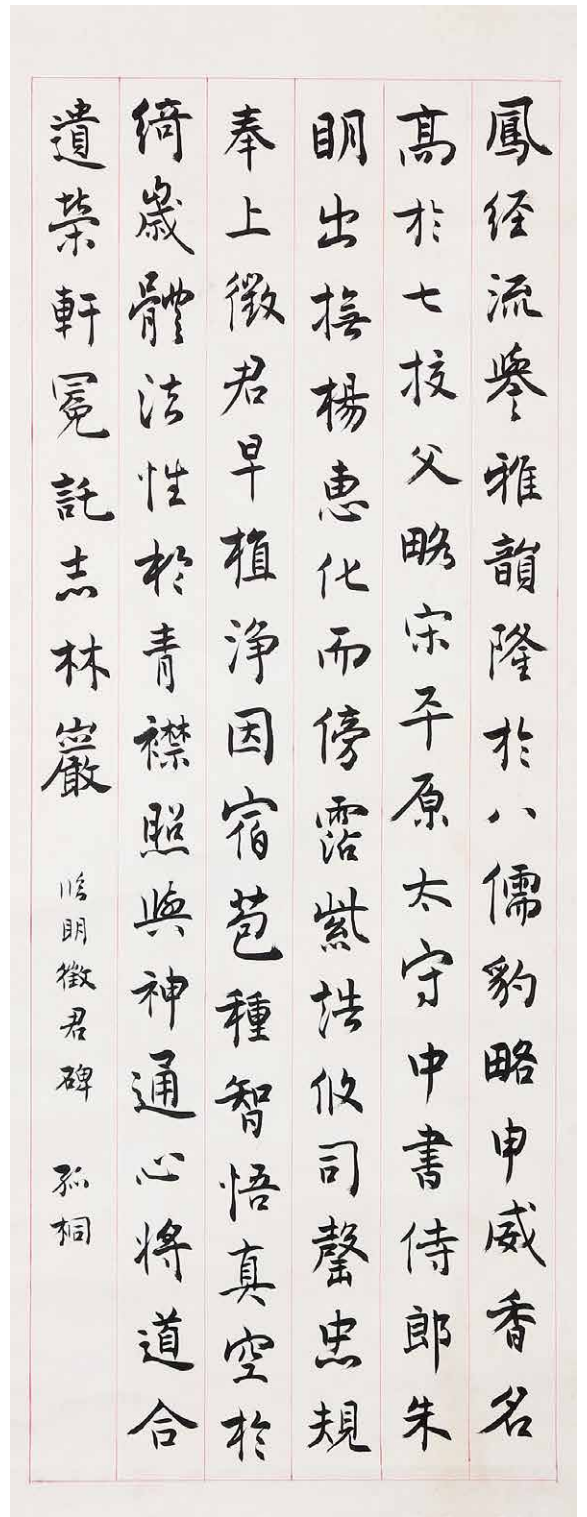 鳳経流譽雅韻隆於八儒豹略申威香名
髙於七挍父略宋平原太守中書侍郎朱
眀出撫楊恵化而傍霑紫誥攸司罄忠規
奉上徵君早植浄因宿苞種智悟真空於
綺歳體法性於青襟照與神通心將道合
遺榮軒冕託志林巖 臨明徵君碑 孤桐